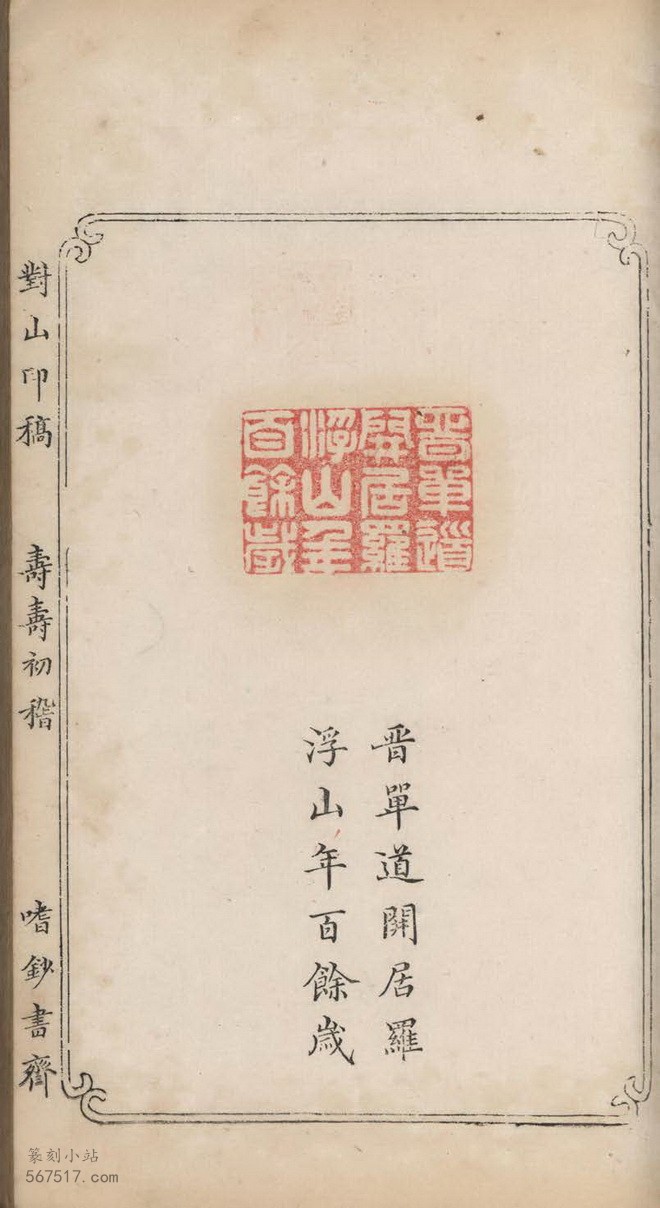 晋單道
開居羅
浮山年
百餘歲
晋單道開居羅
浮山年百餘歲
對山印稿 壽壽初稽 嗜鈔書齋
篆刻小站
567517.com